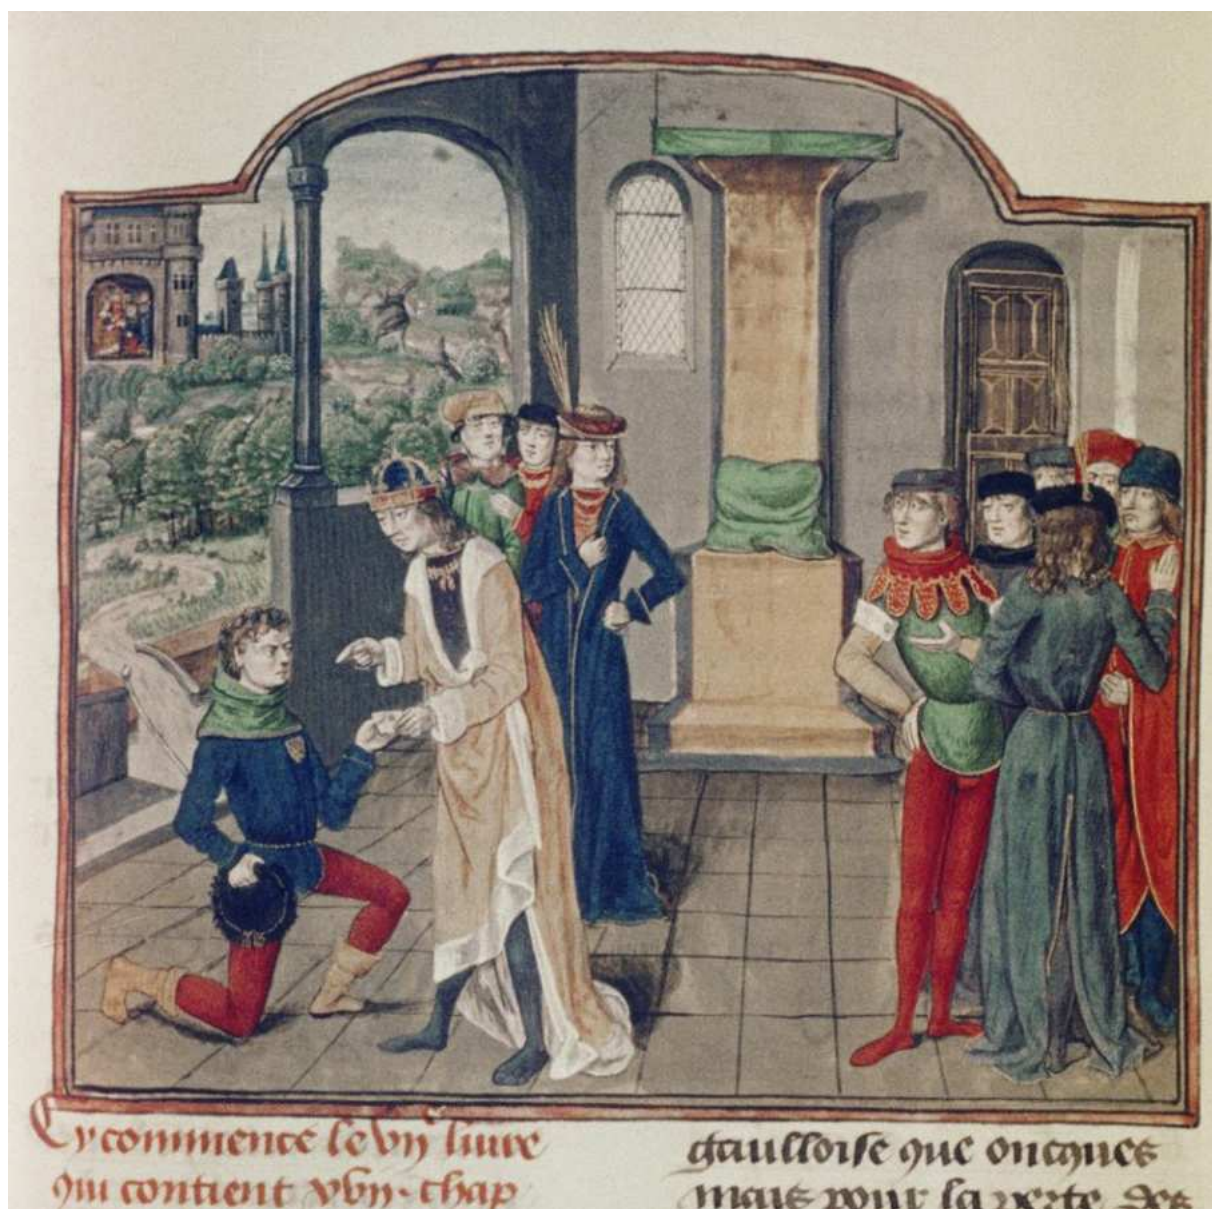 Cy commence le vijͤ liure
qui contient xvij. chap
gaulloise que oncques
mais pour la perte des